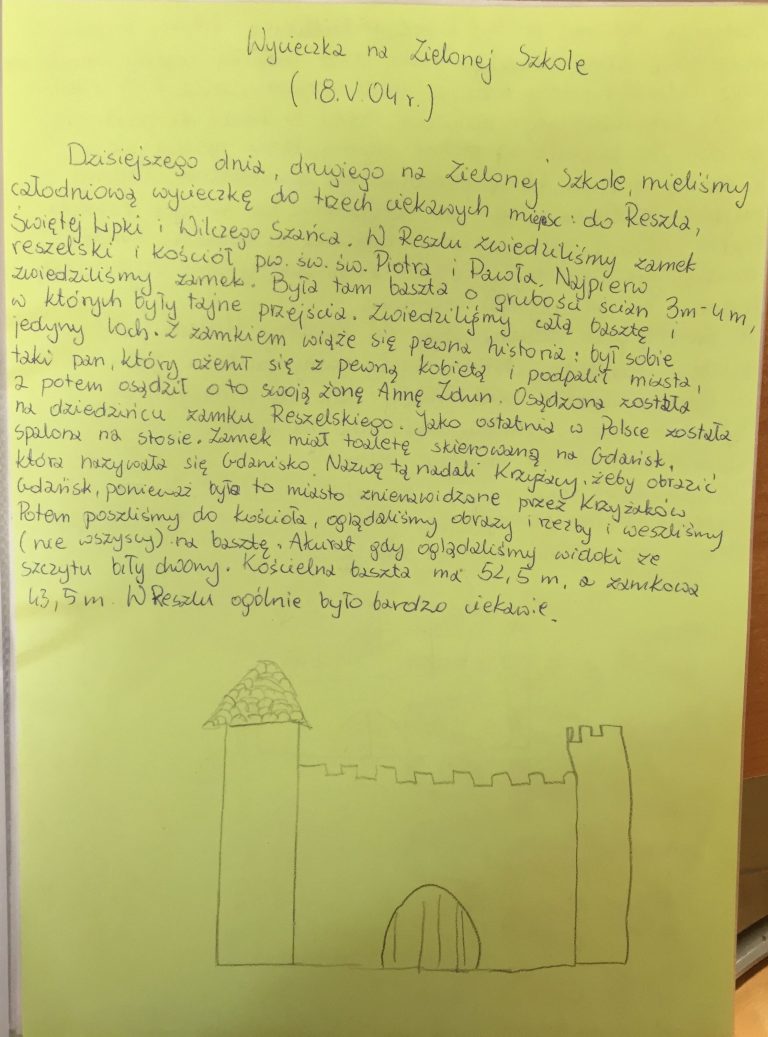 Wycieczka na Zielonej Szkole
(18.V.04r.)
Dzisiejszego dnia, drugiego na Zielonej Szkole, mieliśmy
całodniową wycieczkę do trzech ciekawych miejsc: do Reszla,
Świętej Lipki i Wilczego Szańca. W Reszlu zwiedziliśmy zamek
reszelski i kościół pw. św. św. Piotra i Pawła. Najpierw
zwiedziliśmy zamek. Była tam baszta o grubości ścian 3m-4m,
w których były tajne przejścia. Zwiedziliśmy całą basztę i
jedyny loch. Z zamkiem wiąże się pewna historia: był sobie
taki pan, który ożenił się z pewną kobietą i podpalił miasta,
a potem osądził o to swoją żonę Annę Zdun. Osądzona została
na dziedzińcu zamku Reszelskiego. Jako ostatnia w Polsce została
spalona na stosie. Zamek miał toaletę skierowaną na Gdańsk,
która nazywała się Gdanisko. Nazwę tą nadali Krzyżacy, żeby obrazić
Gdańsk, ponieważ było to miasto znienawidzone przez Krzyżaków
Potem poszliśmy do kościoła, oglądaliśmy obrazy i rzeźby i weszliśmy
(nie wszyscy) na basztę. Akurat gdy oglądaliśmy widoki ze
szczytu biły dwony. Kościelna baszta ma 52,5 m, a zamkowa
43,5 m. W Reszlu ogólnie było bardzo ciekawie.